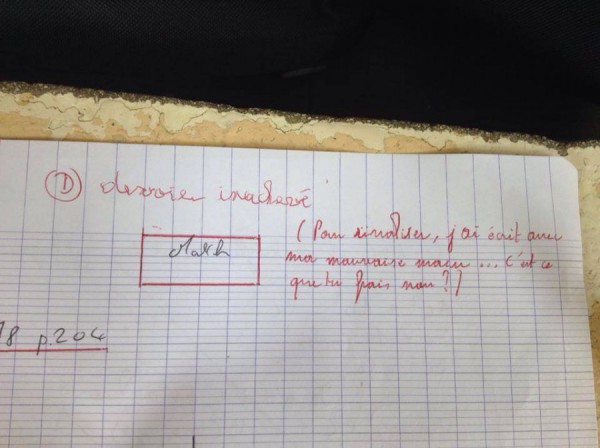 D devoir inachevé
Math
(Pour rivaliser, j'ai écrit avec
ma mauvaise main ... c'est ce
que tu fais non ?)
78 p.204